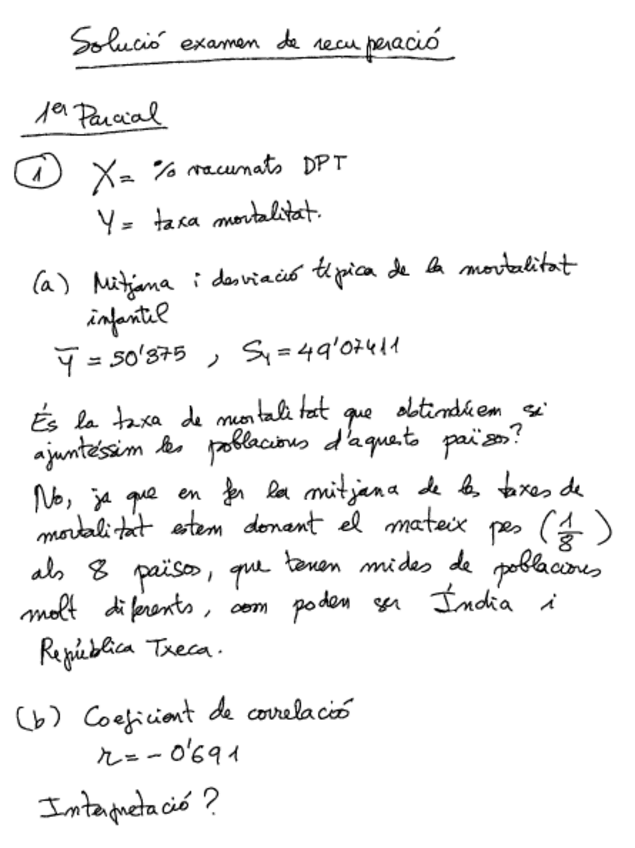 Solució examen de recuperació
1er Parcial
1 X = % vacunats DPT
Y = taxa mortalitat.
(a) Mitjana i desviació típica de la mortalitat
infantil
Y̅ = 50'375 , Sy = 49'07411
És la taxa de mortalitat que obtindríem si
ajuntéssim les poblacions d'aquests països?
No, ja que en fer la mitjana de les taxes de
mortalitat estem donant el mateix pes (1/8)
als 8 països, que tenen mides de poblacions
molt diferents, com poden ser Índia i
República Txeca.
(b) Coeficient de correlació
r = - 0'691
Interpretació?